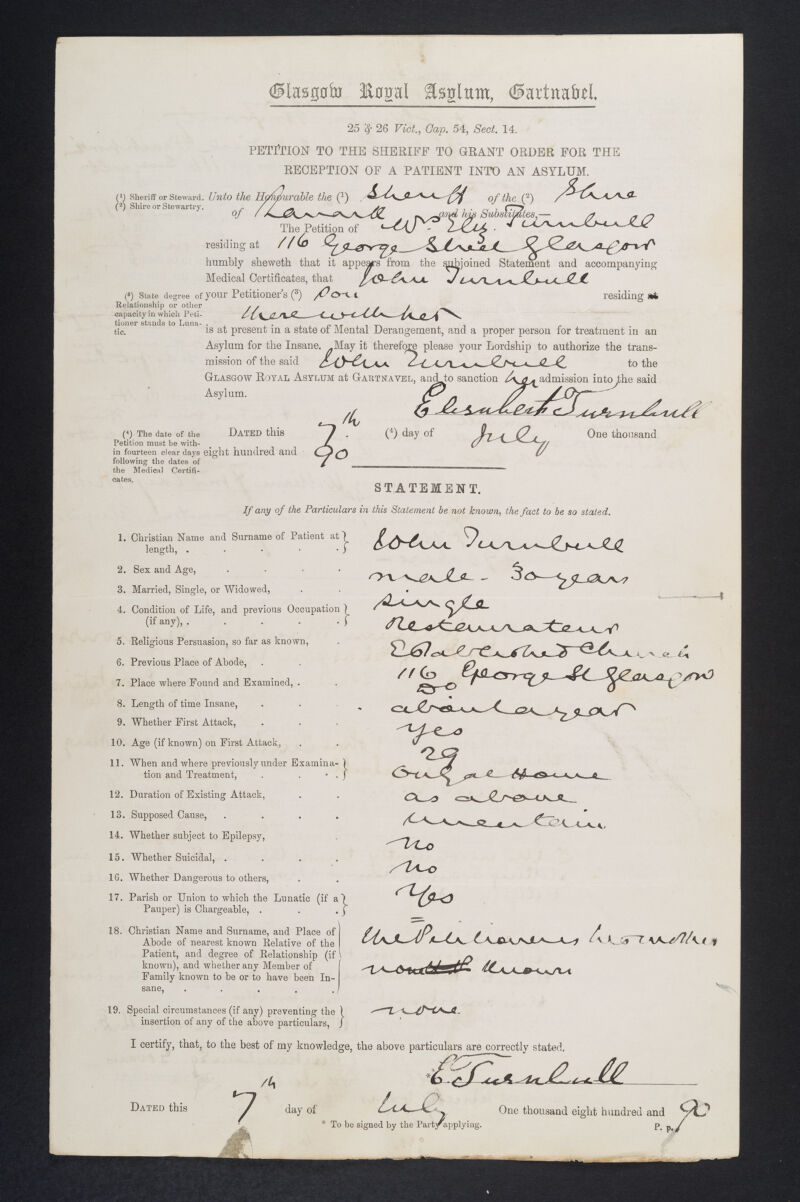 Glasgow Royal Asylum, Gartnavel.
25 & 26 Vict., Cap. 54, Sect. 14.
PETITION TO THE SHERIFF TO GRANT ORDER FOR THE
RECEPTION OF A PATIENT INTO AN ASYLUM.
(1) Sheriff or Steward.
(2) Shire or Stewartry.
Unto the Honourable the (1) Sheriff of the (2) Shire
of Lanark and his Substitutes,—
The Petition of Mrs Eliz. Turnbull
residing at 116 George Street Glasgow
humbly sheweth that it appears from the subjoined Statement and accompanying
Medical Certificates, that John Turnbull
(3) State degree of
Relationship or other
capacity in which Peti-
tioner stands to Luna-
tic.
your Petitioner's (3) son residing at
there with her
is at present in a state of Mental Derangement, and a proper person for treatment in an
Asylum for the Insane. May it therefore please your Lordship to authorize the trans-
mission of the said John Turnbull to the
GLASGOW ROYAL ASYLUM at GARTNAVEL, and to sanction her admission into the said
Asylum.
Elisabeth Turnbull
(4) The date of the
Petition must be with-
in fourteen clear days
following the dates of
the Medical Certifi-
cates.
DATED this 7th (4) day of July One thousand
eight hundred and 90
STATEMENT.
If any of the Particulars in this Statement be not known, the fact to be so stated.
1. Christian Name and Surname of Patient at
length, . . . . . John Turnbull
2. Sex and Age, . . . . male - 30 years
3. Married, Single, or Widowed, . . single
4. Condition of Life, and previous Occupation
(if any), . . . . . Restaurateur
5. Religious Persuasion, so far as known, . Established Church
6. Previous Place of Abode, . . 116 George St Glasgow
7. Place where Found and Examined, . . Do
8. Length of time Insane, . . . about a year
9. Whether First Attack, . . . Yes
10. Age (if known) on First Attack, . . 29
11. When and where previously under Examina-
tion and Treatment, . . . . only at Home
12. Duration of Existing Attack, . . as above
13. Supposed Cause, . . . . uncertain
14. Whether subject to Epilepsy, . no
15. Whether Suicidal, . . . . no
16. Whether Dangerous to others, . . Yes
17. Parish or Union to which the Lunatic (if a
Pauper) is Chargeable, . . . =
18. Christian Name and Surname, and Place of
Abode of nearest known Relative of the
Patient, and degree of Relationship (if
known), and whether any Member of
Family known to be or to have been In-
sane, . . . . .
the Petitioner is his mother
known
19. Special circumstances (if any) preventing the
insertion of any of the above particulars, none.
I certify, that, to the best of my knowledge, the above particulars are correctly stated.
*E. Turnbull
DATED this 7th day of July One thousand eight hundred and 90
* To be signed by the Party applying.
P. p.